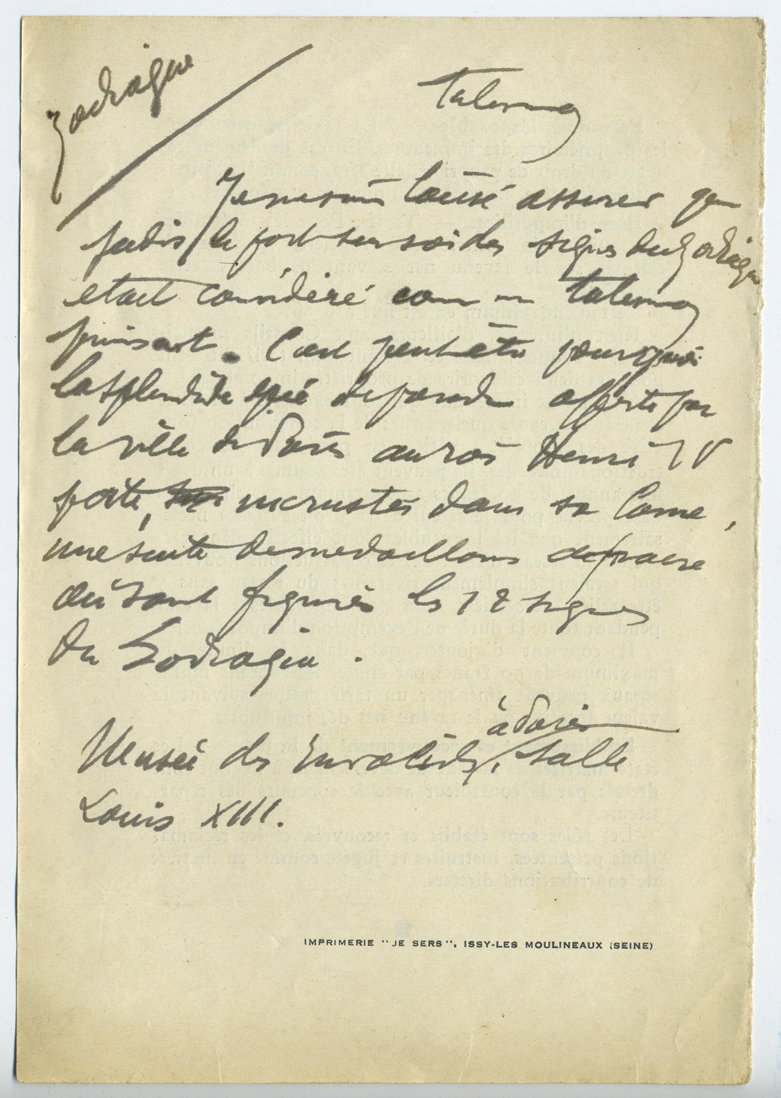 Zodiaque
Talisman
Je me suis laissé assurer que
jadis le port sur soi des signes du Zodiaque
etait considéré comme un talisman
puissant. C'est peut être pourquoi
la splendide epée de parade offerte par
la ville de Paris au roi Henri IV
porte, incrustés dans sa lame,
une suite de medaillons de nacre
où sont figurés les 12 signes
du Zodiaque.
à Paris
Musée des Invalides, salle
Louis XIII.
IMPRIMERIE "JE SERS", ISSY-LES MOULINEAUX (SEINE)